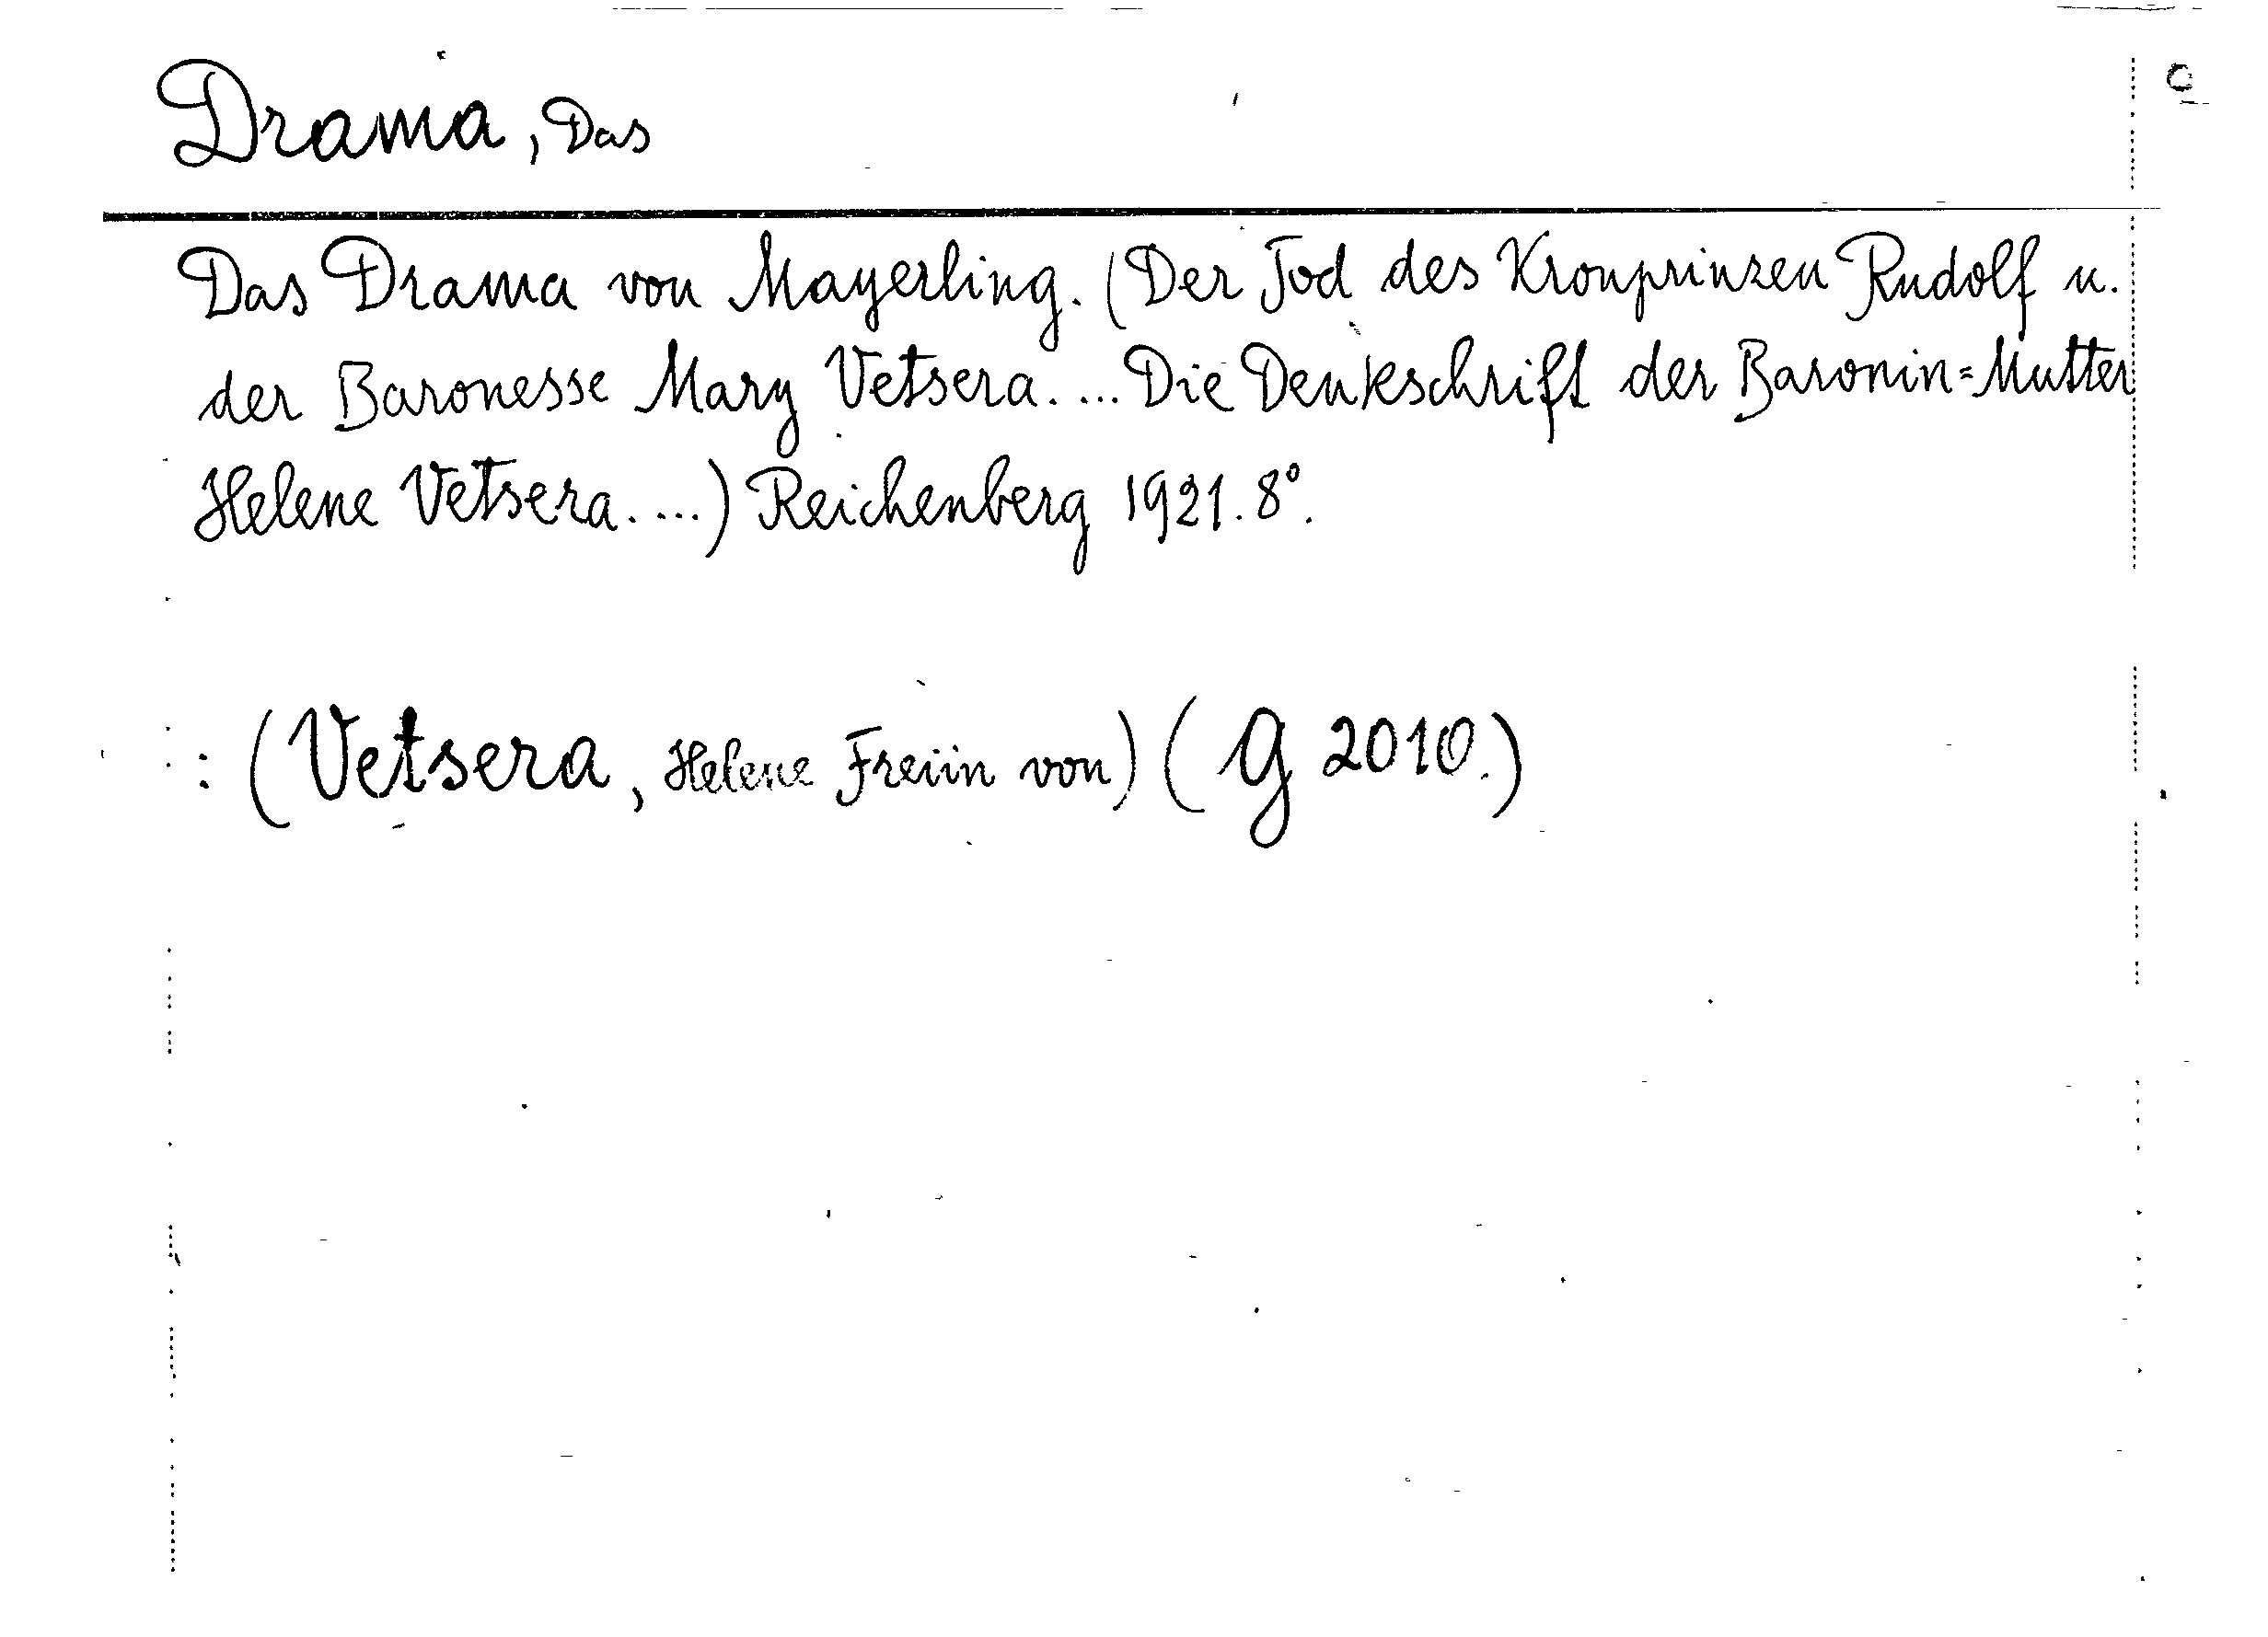 Drama, Das
Das Drama von Mayerling. (Der Tod des Kronprinzen Rudolf u.
der Baronesse Mary Vetsera. ... Die Denkschrift der Baronin=Mutter
Helene Vetsera. ...) Reichenberg 1921. 8°.
: (Vetsera, Helene Freiin von) (G 2010.)